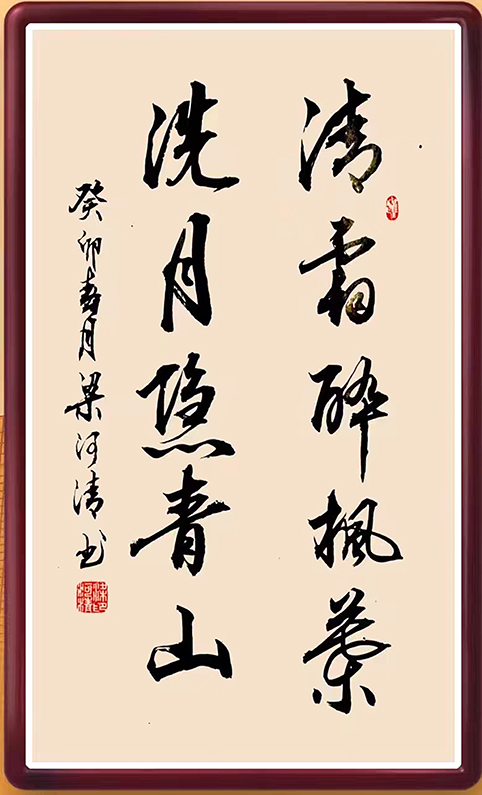 清霜醉楓葉
洗月隐青山
癸卯春月梁河清书